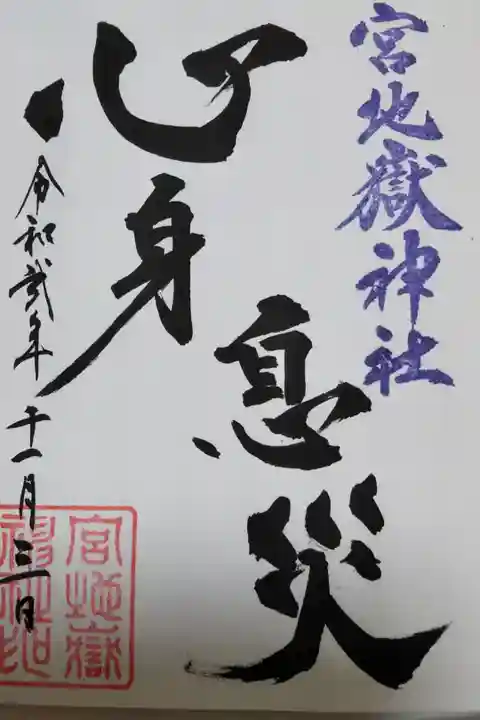 宮地嶽神社
心身
息災
令和弐年十一月三日
宮地嶽
神社